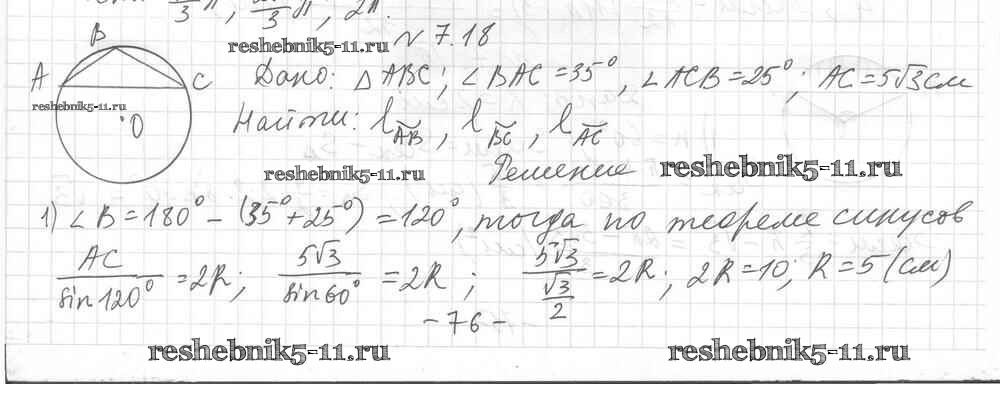 reshebnik5-11.ru
N 7.18
B
A
C
O
reshebnik5-11.ru
Дано: △ABC; ∠BAC=35°, ∠ACB=25°; AC=5√3см
Найти: l_AB, l_BC, l_AC
reshebnik5-11.ru
Решение
reshebnik5-11.ru
1) ∠B=180°-(35°+25°)=120°, тогда по теореме синусов
AC/sin120° =2R; 5√3/sin60° =2R; 5√3/(√3/2) =2R; 2R=10; R=5(см)
-76-
reshebnik5-11.ru
reshebnik5-11.ru